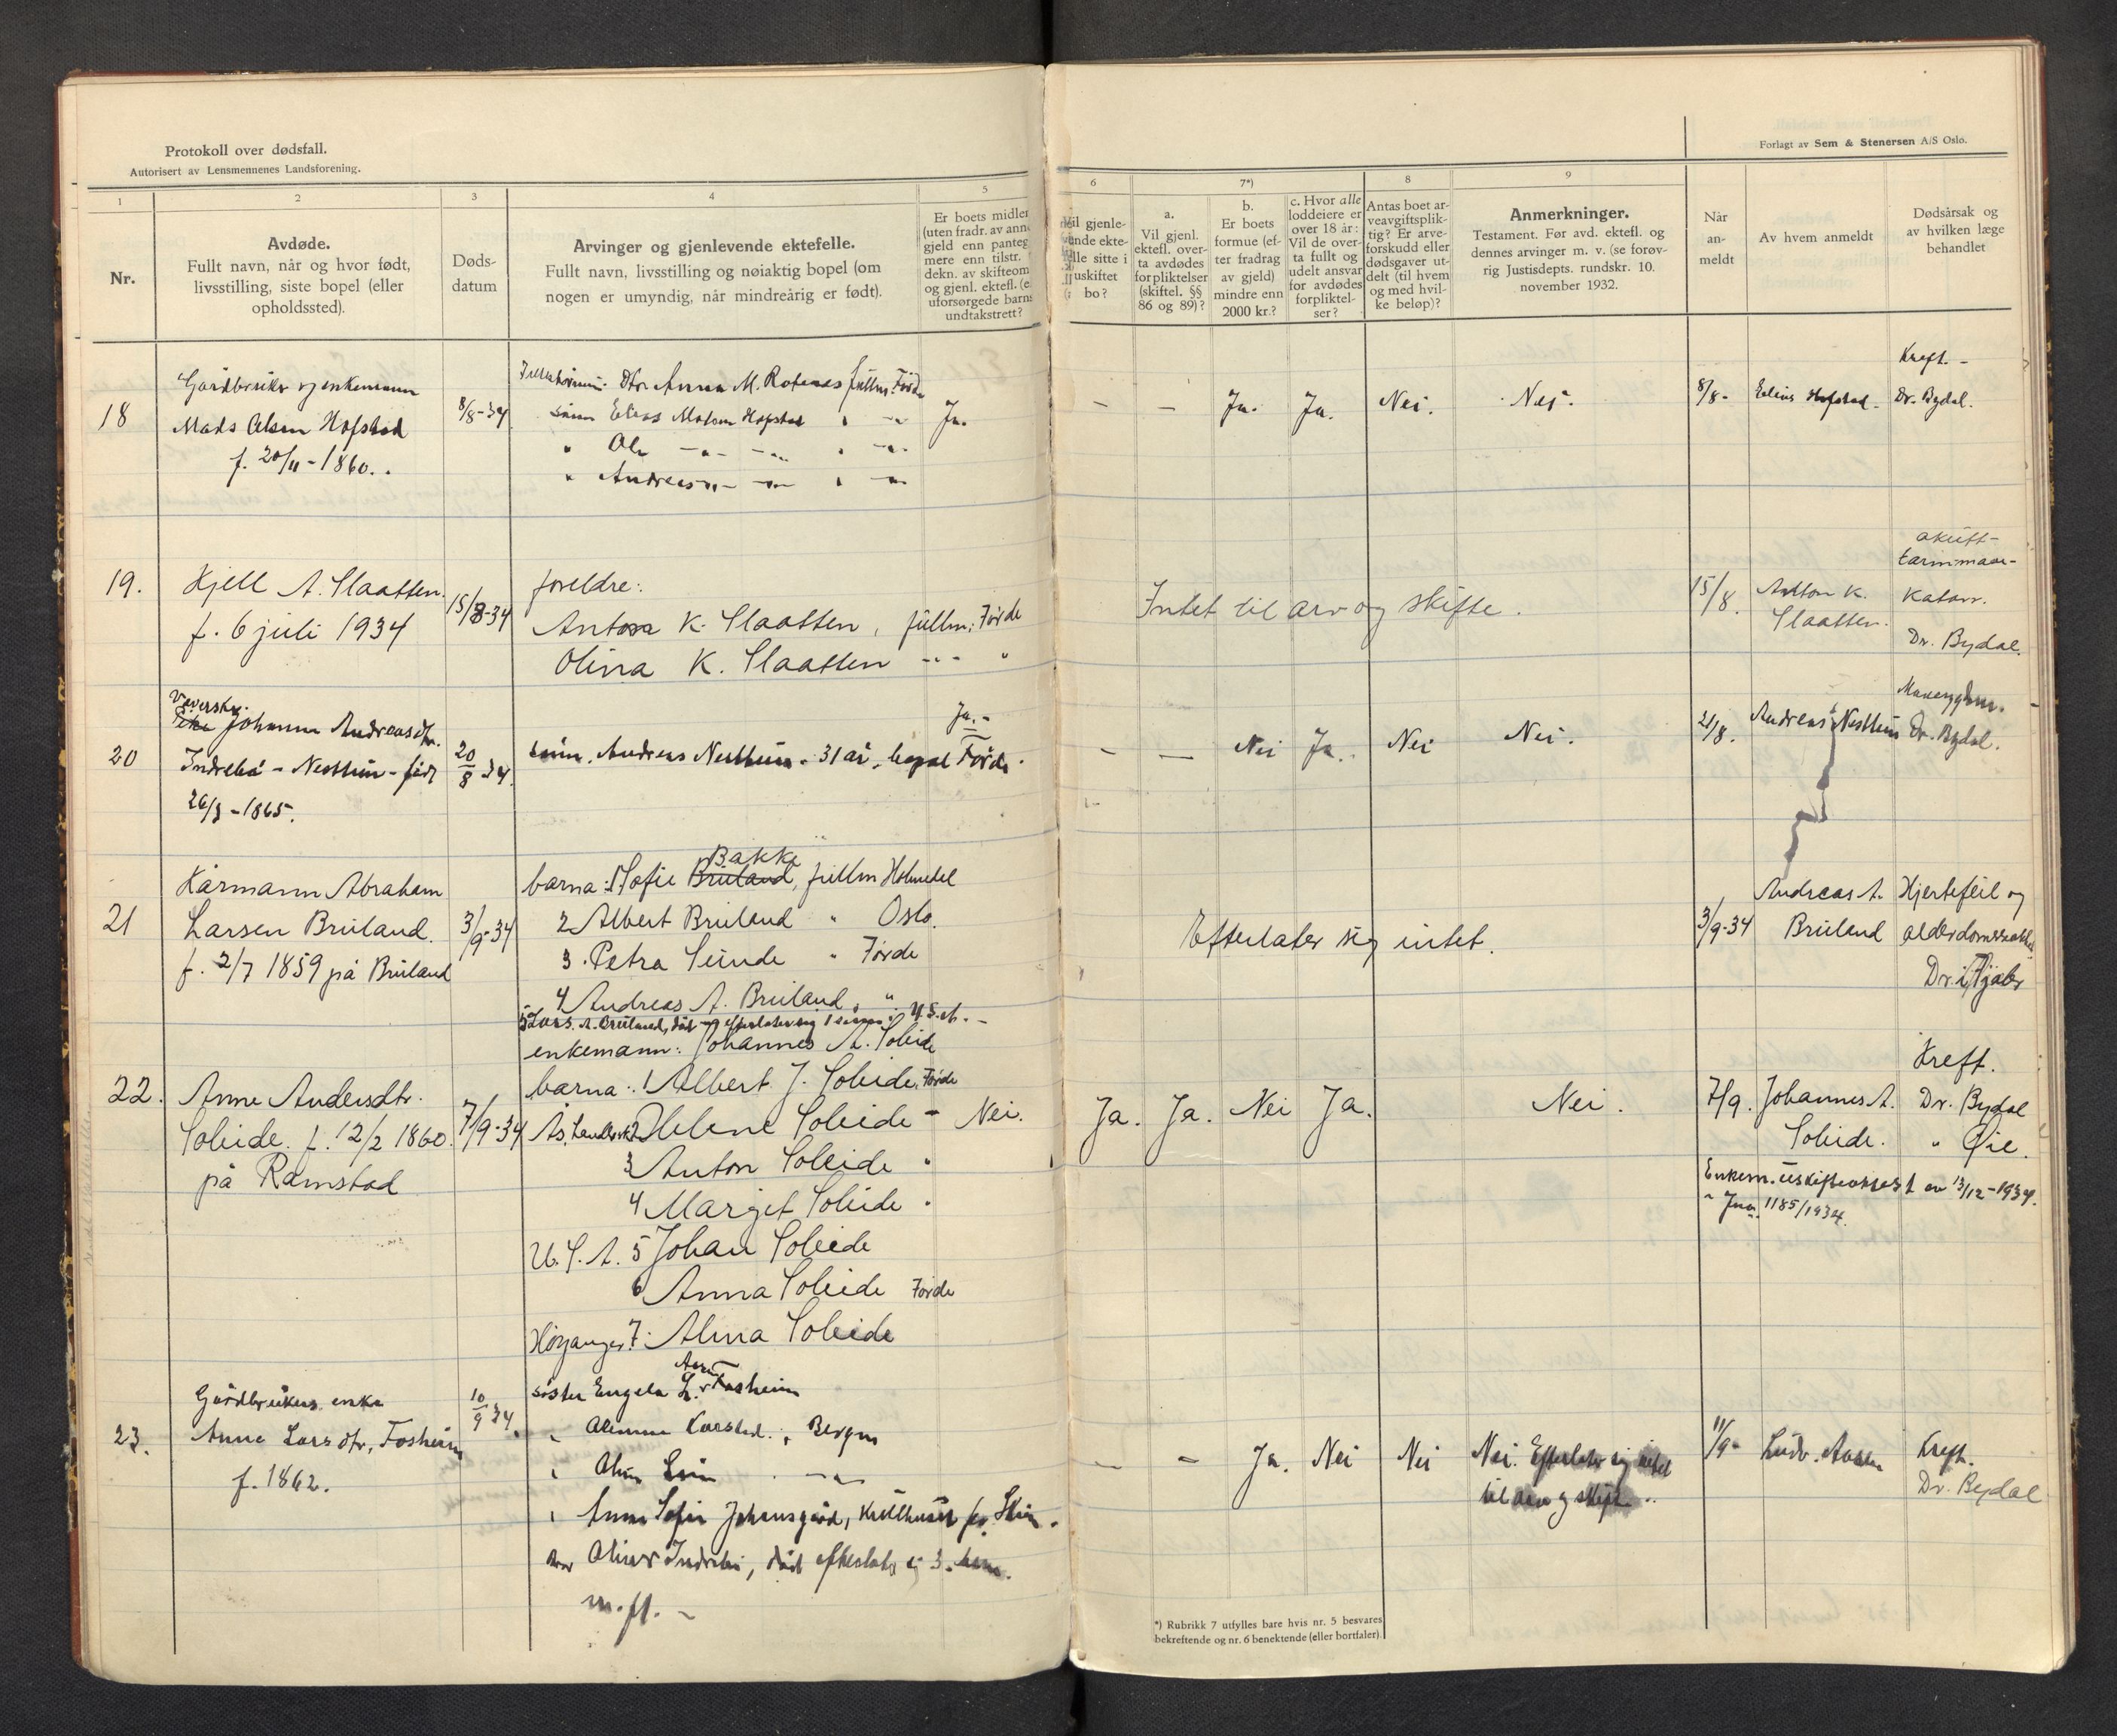 Protokoll over dødsfall.
Autorisert av Lensmennenes Landsforening.
Forlagt av Sem & Stenersen A/S Oslo.
1
2
3
4
5
6
7*)
8
9
Nr.
Avdøde.
Fullt navn, når og hvor født,
livsstilling, siste bopel (eller
opholdssted).
Døds-
datum
Arvinger og gjenlevende ektefelle.
Fullt navn, livsstilling og nøiaktig bopel (om
nogen er umyndig, når mindreårig er født).
Er boets midler
(uten fradr. av ann
gjeld enn panteg
mere enn tilstr.
dekn. av skifteom
og gjenl. ektefl. (e
uforsørgede barns
undtakstrett?
Vil gjenle-
ende ekte-
lle sitte i
uskiftet
bo?
a.
Vil gjenl.
ektefl. over-
ta avdødes
forpliktelser
(skiftel. §§
86 og 89)?
b.
Er boets
formue (ef-
ter fradrag
av gjeld)
mindre enn
2000 kr.?
c. Hvor alle
loddeiere er
over 18 år:
Vil de over-
ta fullt og
udelt ansvar
for avdødes
forpliktel-
ser?
Antas boet ar-
veavgiftsplik-
tig? Er arve-
forskudd eller
dødsgaver ut-
delt (til hvem
og med hvil-
ke beløp)?
Anmerkninger.
Testament. Før avd. ektefl. og
dennes arvinger m. v. (se forøv-
rig Justisdepts. rundskr. 10.
november 1932.
Når
an-
meldt
Av hvem anmeldt
Dødsårsak og
av hvilken læge
behandlet
18
Gårdbruker og enkemann
Mads Olsen Hofstad
f. 20/11 - 1860.
8/8-34
Dtr. Anna M. Rotenes fullm. Førde
sønn Elias Madsen Hofstad " -"-
" Ole -"- -"- " -"-
" Andreas -"- -"- " -"-
Ja.
- - Ja. Ja. Nei. Nei.
8/8- Elias Hofstad.
Kreft. -
Dr. Bydal.
19.
Kjell A. Slaatten.
f. 6 juli 1934
15/8-34
foreldre:
Anton K. Slaatten, fullm. Førde
Olina K. Slaatten -"- "
Intet til arv og skifte.
15/8.
Anton K.
Slaatten.
akutt-
tarmmave-
katarr.
Dr. Bydal.
20
Veverske
Johanna Andreasdtr.
Indrebø - Nesttun - født
26/8 - 1865.
20/8-34.
sønn. Andreas Nesttun - 31 år, bopel Førde.
Ja. -
- - Nei Ja. Nei Nei.
21/8.
Andreas Nesttun
Dr. Bydal.
21
Kårmann Abraham
Larsen Bruland.
f. 2/7 1859 på Bruland
3/9-34
Bakke
barna: 1 Sofie Bruland, fullm Holmedal
2 Albert Bruland " Oslo.
3. Petra Sunde " Førde
4 Andreas A. Bruland, "
5 Lars A. Bruland, død og efterlater sig 1 sønn i U.S.A. -
Efterlater sig intet.
3/9-34
Andreas A.
Bruland
Hjertefeil og
22.
Anne Andersdtr.
Soleide. f. 12/2 1860.
på Ramstad
7/9-34
enkemann: Johannes A. Soleide
barna: 1 Albert J. Soleide, Førde
2 Helene Soleide - Nei.
3 Anton Soleide "
4 Marget Soleide "
U.S.A. 5 Johan Soleide
6 Anna Soleide Førde
Høyanger. 7. Alma Soleide
Ja. Ja. Nei Ja. Nei.
7/9.
Johannes A.
Soleide.
Kreft.
Dr. Bydal
" Øie.
Enkem. uskifteattest av 13/12-1934.
Jnr. 1185/1934.
23.
Gårdbrukers enke
Anne Larsdtr. Fosheim
f. 1862.
10/9 34.
søster Engela L. Fosheim
" Karstad. , Bergen
" -"-
" Anna Sofie Johansgård, Knillhuset pr. Skien.
bror Oliver Indrebø, død efterlater sig 3. barn.
m. fl. -
- - Ja. Nei Nei
Nei. Efterlater sig intet
til arv og skifte.
11/9-
Ludv. Aasen
Kreft.
Dr. Bydal
*) Rubrikk 7 utfylles bare hvis nr. 5 besvares
bekreftende og nr. 6 benektende (eller bortfaler).